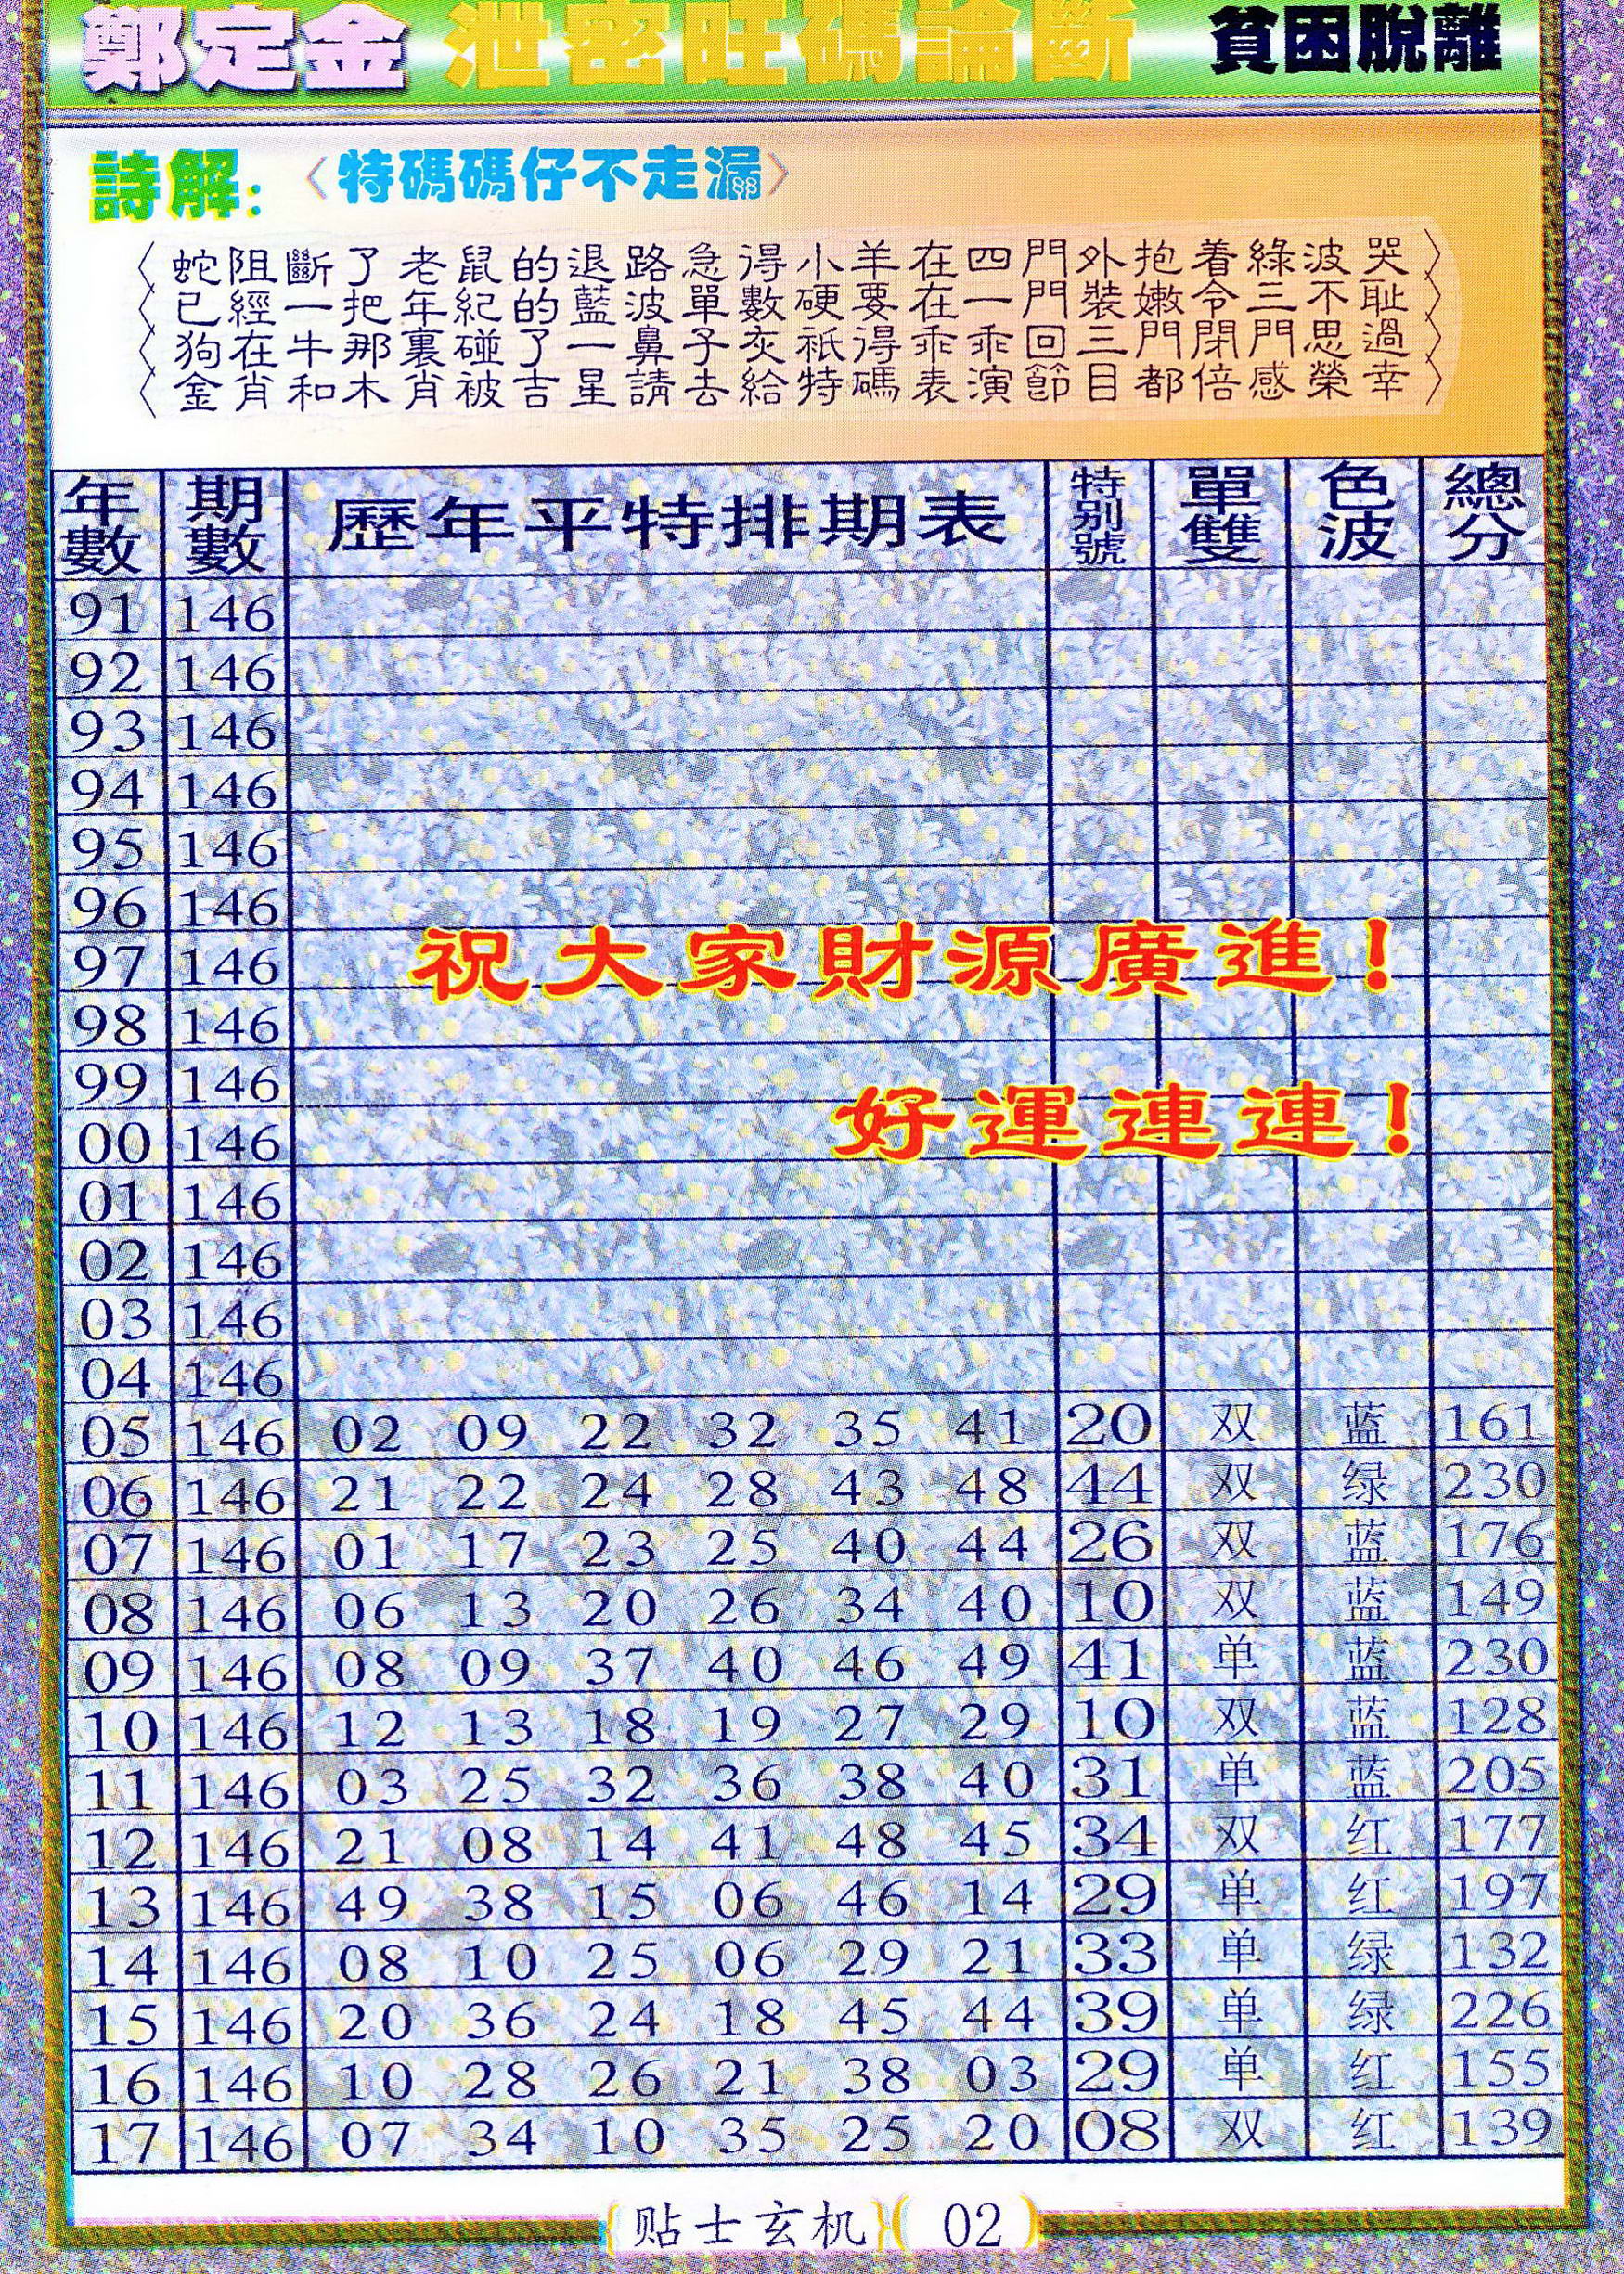 鄭定金 泄密旺碼論斷 貧困脫離
詩解：〈特碼碼仔不走漏〉
〈蛇阻斷了老鼠的退路急得小羊在四門外抱着綠波哭〉
〈已經一把年紀的藍波單數硬要在一門裝嫩令三不恥〉
〈狗在牛那裏碰了一鼻子灰祇得乖乖回三門閉門思過〉
〈金肖和木肖被吉星請去給特碼表演節目都倍感榮幸〉
年數 期數 歷年平特排期表 特别號 單雙 色波 總分
91 146
92 146
93 146
94 146
95 146
96 146
祝大家財源廣進！
97 146
98 146
99 146
好運連連！
00 146
01 146
02 146
03 146
04 146
05 146 02 09 22 32 35 41 20 双 蓝 161
06 146 21 22 24 28 43 48 44 双 绿 230
07 146 01 17 23 25 40 44 26 双 蓝 176
08 146 06 13 20 26 34 40 10 双 蓝 149
09 146 08 09 37 40 46 49 41 单 蓝 230
10 146 12 13 18 19 27 29 10 双 蓝 128
11 146 03 25 32 36 38 40 31 单 蓝 205
12 146 21 08 14 41 48 45 34 双 红 177
13 146 49 38 15 06 46 14 29 单 红 197
14 146 08 10 25 06 29 21 33 单 绿 132
15 146 20 36 24 18 45 44 39 单 绿 226
16 146 10 28 26 21 38 03 29 单 红 155
17 146 07 34 10 35 25 20 08 双 红 139
贴士玄机 02